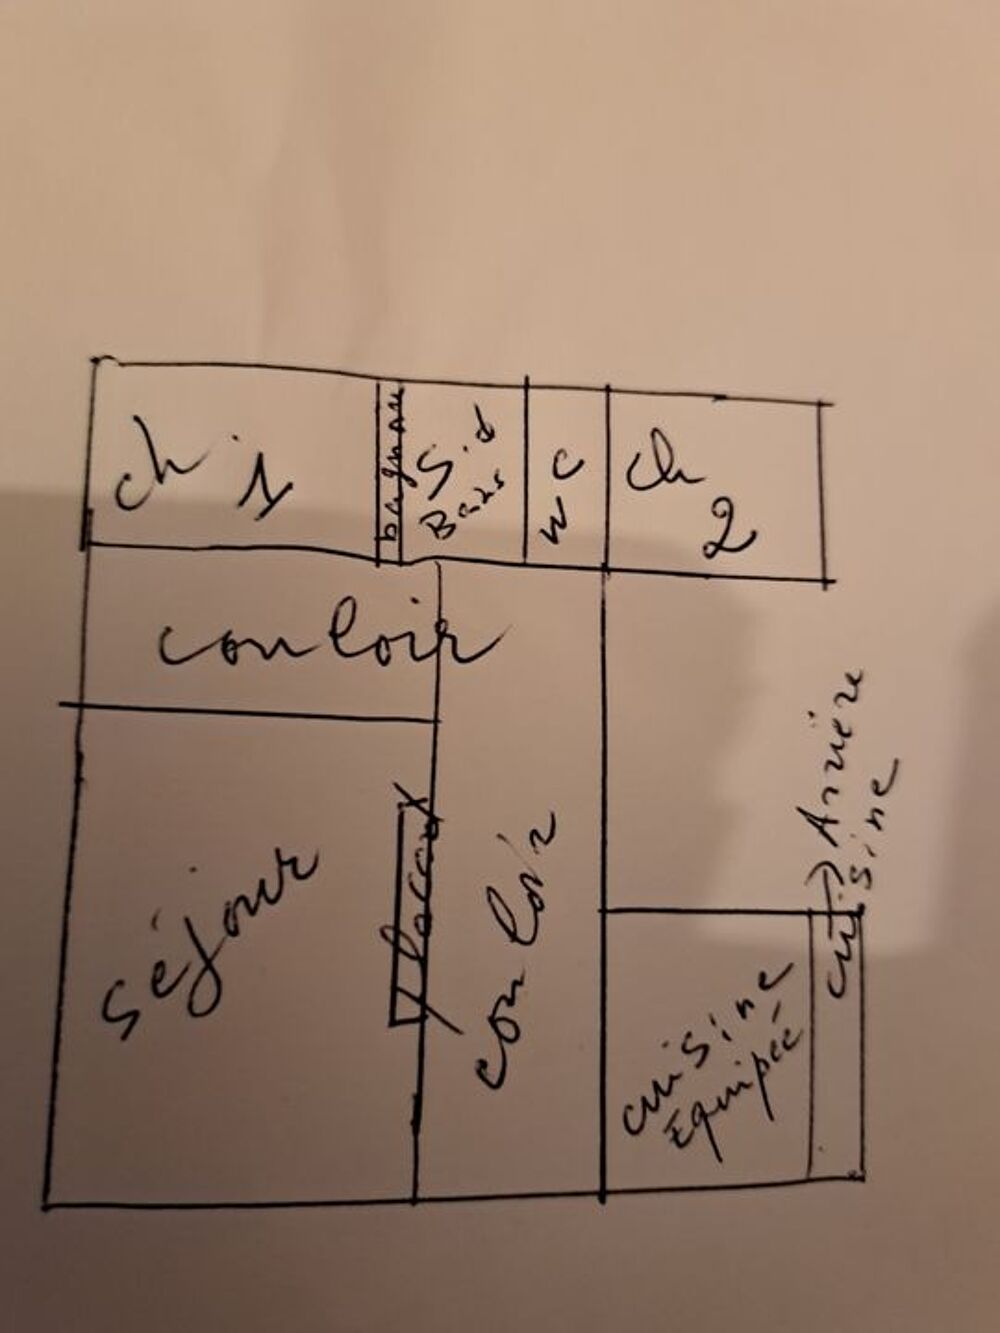 ch 1
baignoire
S. d
Bains
wc
ch
2
couloir
séjour
placard
couloir
cuisine
Equipée
Arrière
cuisine